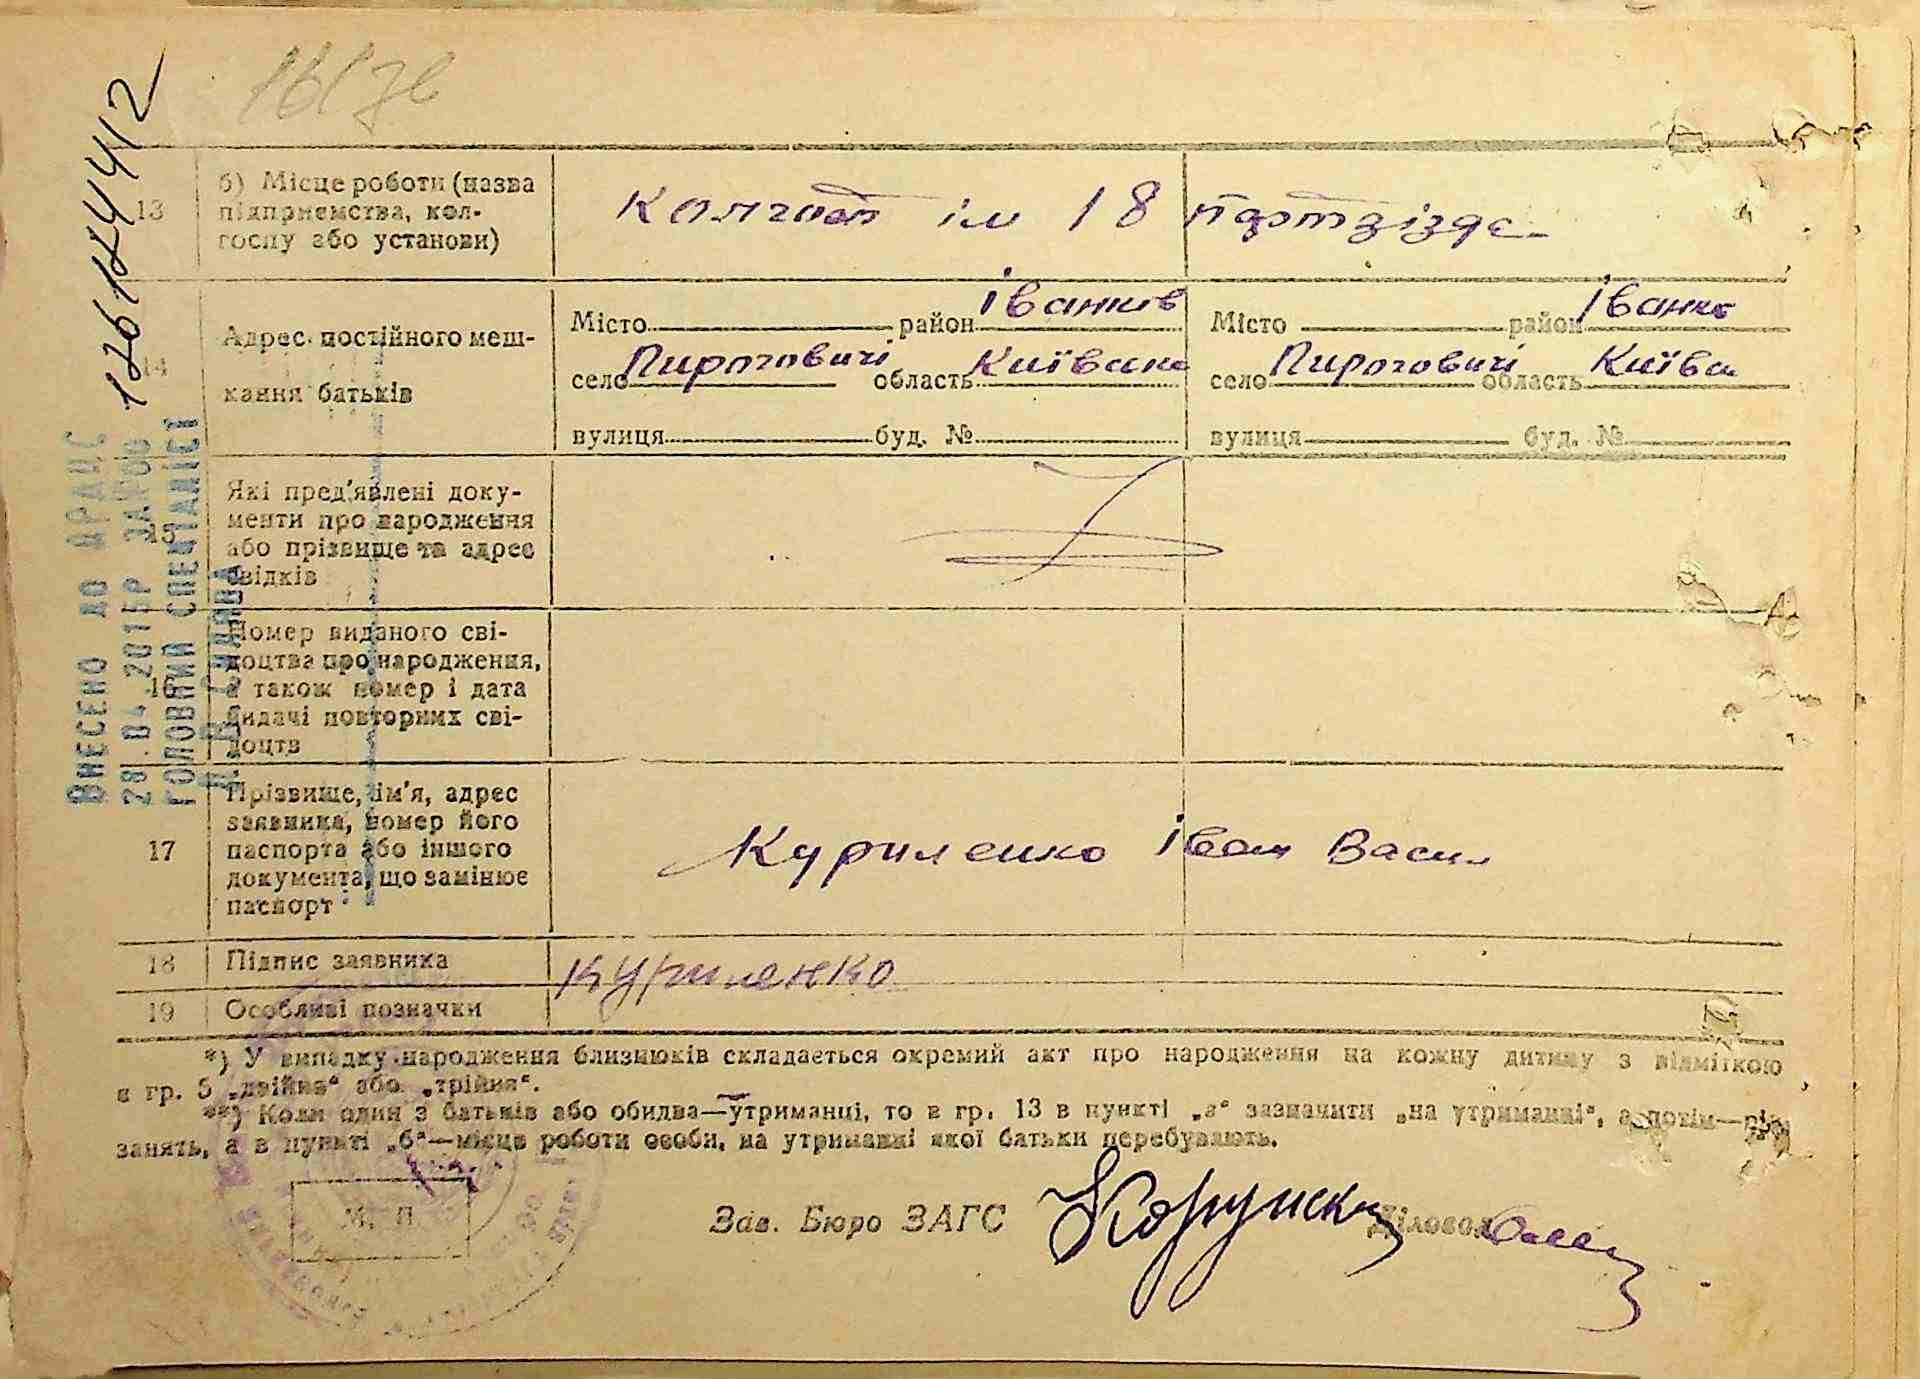 126124412
13
б) Місце роботи (назва
підприємства, кол-
госпу або установи)
Колгосп ім 18 партзізде
14
Адрес постійного меш-
кання батьків
Місто район Іванків
село Пироговичі область Київська
вулиця буд. №
Місто район Іванків
село Пироговичі область Київсь
вулиця буд. №
15
Які пред'явлені доку-
менти про народження
або прізвище та адрес
свідків
16
Номер виданого сві-
доцтва про народження,
а також номер і дата
видачі повторних сві-
доцтв
17
Прізвище, ім'я, адрес
заявника, номер його
паспорта або іншого
документа, що замінює
паспорт
Куриленко Іван Васил
18
Підпис заявника
Куриленко
19
Особливі позначки
*) У випадку народження близнюків складається окремий акт про народження на кожну дитину з відміткою
в гр. 5 „двійня“ або „трійня“.
**) Коли один з батьків або обидва—утриманці, то в гр. 13 в пункті „а“ зазначити „на утриманні“, а потім—рід
занять, а в пункті „б“—місце роботи особи, на утриманні якої батьки перебувають.
М. П.
Зав. Бюро ЗАГС
Діловод
ВНЕСЕНО ДО ДРАЦС
28.04.2015Р
ГОЛОВНИЙ СПЕЦІАЛІСТ